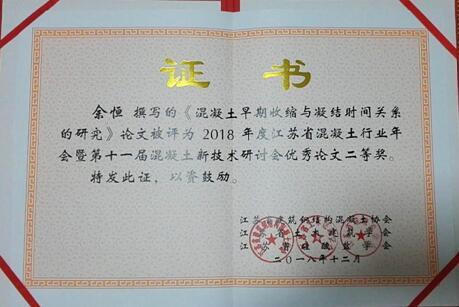 证书
余恒 撰写的《混凝土早期收缩与凝结时间关系
的研究》论文被评为 2018 年度江苏省混凝土行业年
会暨第十一届混凝土新技术研讨会优秀论文二等奖。
特发此证，以资鼓励。
江苏 建筑钢结构混凝土协会
江 省土木建筑学会
江 硅酸盐学会
二〇一八年十二月